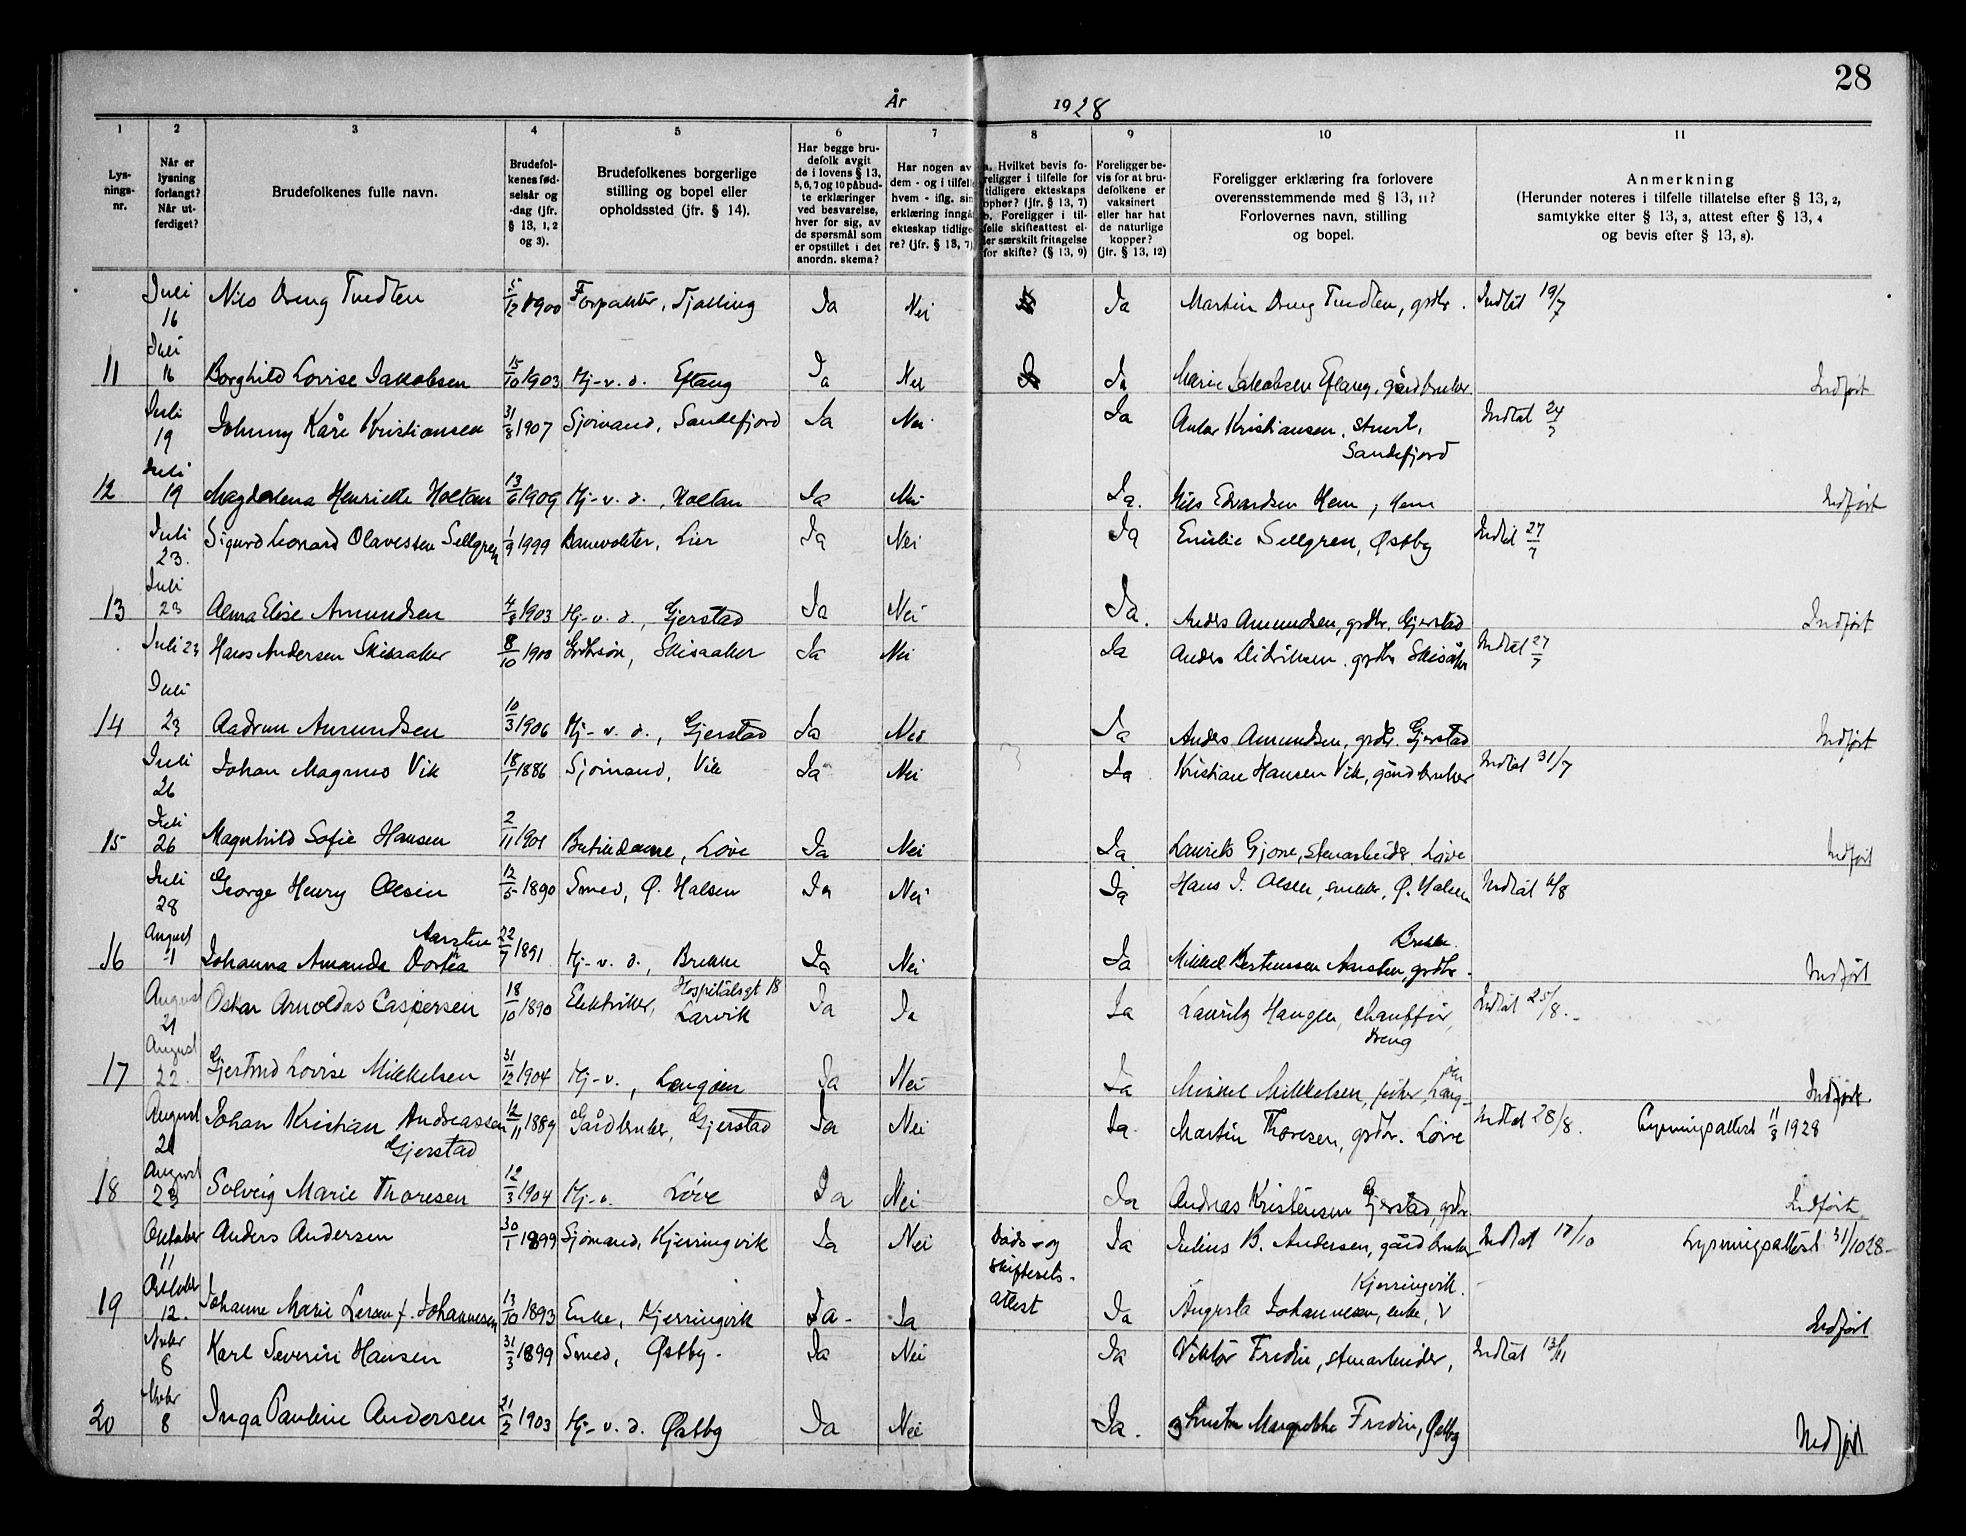 28
År 1928
1 2 3 4 5 6 7 8 9 10 11
Lysningsnr.
Når er lysning forlangt? Når utferdiget?
Brudefolkenes fulle navn.
Brudefolkenes fødselsår og -dag (jfr. § 13, 1, 2 og 3).
Brudefolkenes borgerlige stilling og bopel eller opholdssted (jfr. § 14).
Har begge brudefolk avgitt de i lovens § 13, 5, 6, 7 og 10 påbudte erklæringer ved besvarelse, hver for sig, av de spørsmål som er opstillet i det anordn. skema?
Har nogen av dem - og i tilfelle hvem - iflg. sin erklæring inngått ekteskap tidligere? (jfr. § 13, 7)
a. Hvilket bevis foreligger i tilfelle for tidligere ekteskaps ophør? (jfr. § 13, 7) b. Foreligger i tilfelle skifteattest eller særskilt fritagelse for skifte? (§ 13, 9)
Foreligger bevis for at brudefolkene er vaksinert eller har hat de naturlige kopper? (jfr. § 13, 12)
Foreligger erklæring fra forlovere overensstemmende med § 13, 11? Forlovernes navn, stilling og bopel.
Anmerkning (Herunder noteres i tilfelle tillatelse efter § 13, 2, samtykke efter § 13, 3, attest efter § 13, 4 og bevis efter § 13, 8).
Juli 16 Nils Dreng Tvedten 5/12 1900 Forpakter, Tjølling Ja Nei Ja Martin Dreng Tvedten, grdbr. Indtat 19/7
11 Juli 16 Borghild Lovise Jakobsen 15/10 1903 Hj-v. d. Eftang Ja Nei Ja Marie Jakobsen Eftang, gårdbruker Indført
Juli 19 Johnny Kåre Kristiansen 31/8 1907 Sjømand, Sandefjord Ja Nei Ja Anker Kristiansen, stuert, Sandefjord Indtat 24/7
12 Juli 19 Magdalena Henriette Holtan 13/6 1909 Hj-v. d., Holtan Ja Nei Ja. Nils Edvardsen Hem, Hem Indført
Juli 23. Sigurd Leonard Olavessen Sellgren 1/9 1999 Banevokter, Lier Ja Nei Ja Emilie Sellgren, Østby Indtat 27/7
13 Juli 23 Alma Elise Amundsen 4/8 1903 Hj-v. d., Gjerstad Ja Nei Ja. Anders Amundsen, grdbr. Gjerstad Indført
Juli 23 Hans Andersen Skisaaker 8/10 1900 Grdbrsøn, Skisaaker Ja Nei Ja Anders Didriksen, grdbr Skisåker Indtat 27/7
14 Juli 23 Aadrun Amundsen 10/3 1906 Hj-v. d., Gjerstad Ja Nei Ja Anders Amundsen, grdbr. Gjerstad Indført
Juli 26 Johan Magnus Vik 18/1 1886 Sjømand, Vik Ja Nei Ja Kristian Hansen Vik, gårdbruker Indtat 31/7
15 Juli 26 Magnhild Sofie Hansen 2/11 1901 Butikdame, Løve Ja Nei Ja Laurits Gjone, stenarbeider Løve Indført
Juli 28 George Henry Olsen 12/5 1890 Smed, Ø. Halsen Ja Nei Ja Hans J. Olsen, snekker, Ø. Halsen Indtat 6/8
16 August 1 Johanna Amanda Dortea Aarsten 22/7 1891 Hj-v. d., Brekke Ja Nei Ja Mikkel Bertinussen Aarsten, grdbr. Brekke. Indført
August 21 Oskar Arnoldus Caspersen 18/10 1890 Elektriker, Hospitalsgt 18 Larvik Ja Ja Ja Lauritz Haugen, chauffør, Dreng Indtat 25/8.
17 August 22. Gjertrud Lovise Mikkelsen 31/12 1904 Hj-v., Langøen Ja Nei Ja Mikkel Mikkelsen, fisker, Langøen Indført
August 21 Johan Kristian Andreassen Gjerstad 12/11 1889 Gårdbruker, Gjerstad Ja Nei Ja Martin Thoresen, grdbr. Løve Indtat 28/8. Lysningsattest 11/8 1928
18 August 23 Solveig Marie Thoresen 12/3 1904 Hj-v. Løve Ja Nei Ja Andreas Kristensen Gjerstad, grdbr. Indført
Oktober 11 Anders Andersen 30/1 1899 Sjømand, Kjerringvik Ja Nei Døds- og skifterets-attest Ja Julius B. Andersen, gårdbruker Kjerringvik. Indtat 17/10 Lysningsattest 31/10 28
19 Oktober 12. Johanne Marie Larsen f. Johannesen 13/10 1893 Enke, Kjerringvik Ja Ja Ja Augusta Johannesen, enke, " Indført
Novbr 6 Karl Severin Hansen 31/3 1899 Smed, Østby. Ja Nei Ja Viktor Fredin, stenarbeider, Indtat 13/11
20 Novbr 8 Inga Pauline Andersen 21/2 1903 Hj-v. d. Østby Ja Nei Ja. og hustru Margrethe Fredin, Østby Indført